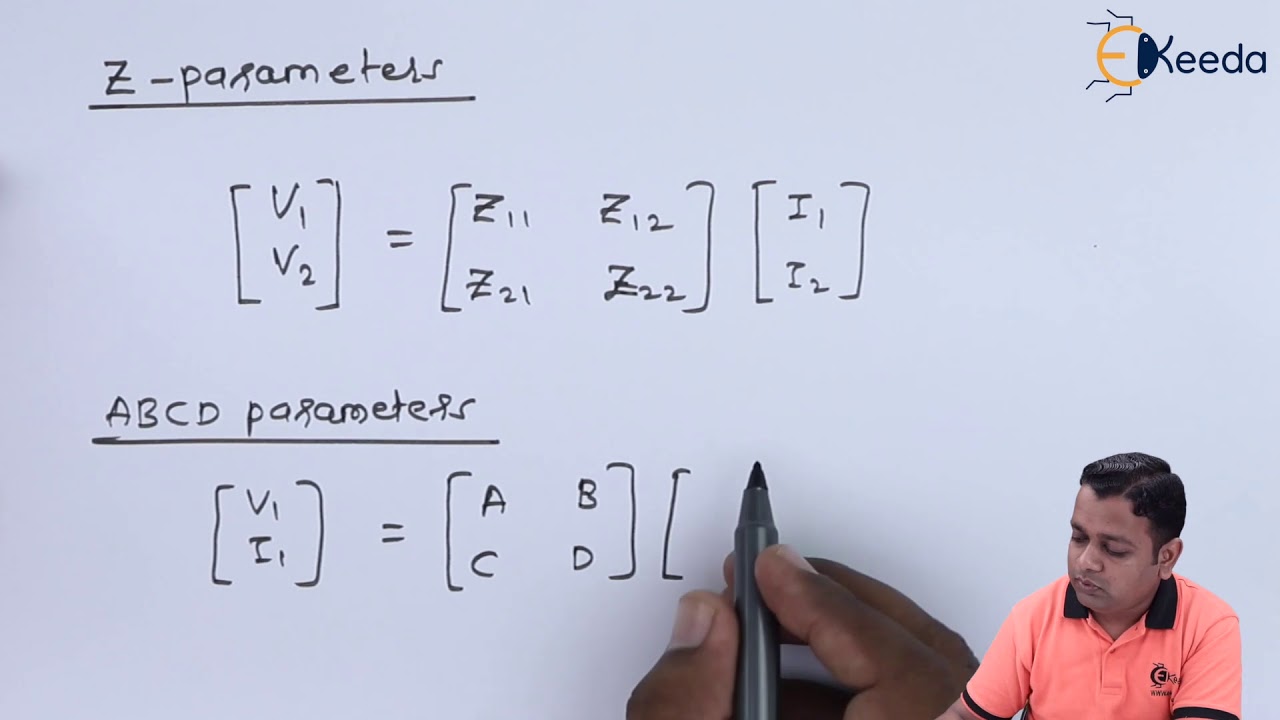 EKeeda
Z-parameters
[V1 V2] = [Z11 Z12 Z21 Z22] [I1 I2]
ABCD parameters
[V1 I1] = [A B C D] [